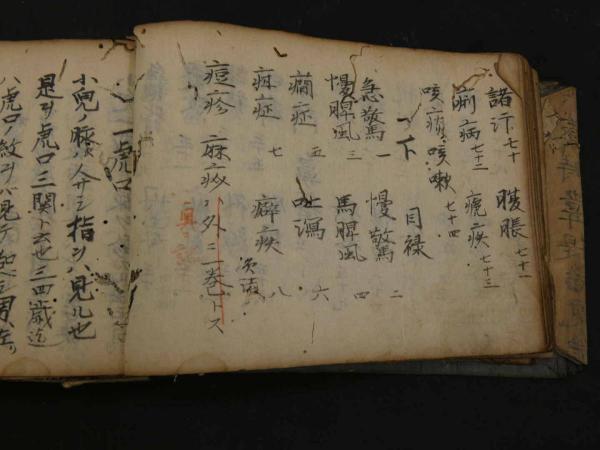 諸汗 七十 腹脹 七十一
痢病 七十二 瘧疾 七十三
咳痰咳嗽 七十四
下 目禄
急驚 一 慢驚 二
慢脾風 三 馬脾風 四
癇症 五 吐瀉 六
疳症 七 癖疾 八
痘疹 麻疹ハ外ニ巻トス
一虎口
小兒ノ脉ハ人サシ指ヲハ見ル也
是ヲ虎口三関ト云也三四歳迄
ハ虎口ノ紋ヲハ見テ